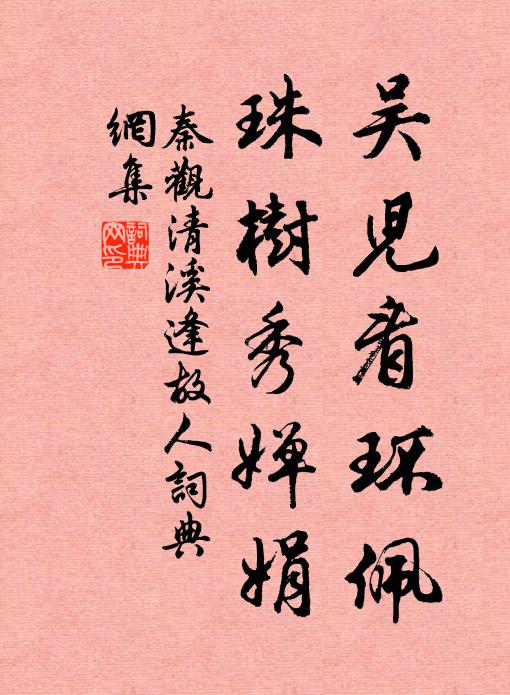 吴兒看环佩
珠樹秀嬋娟
秦觀清溪逢故人詞典
網集
詞典網印